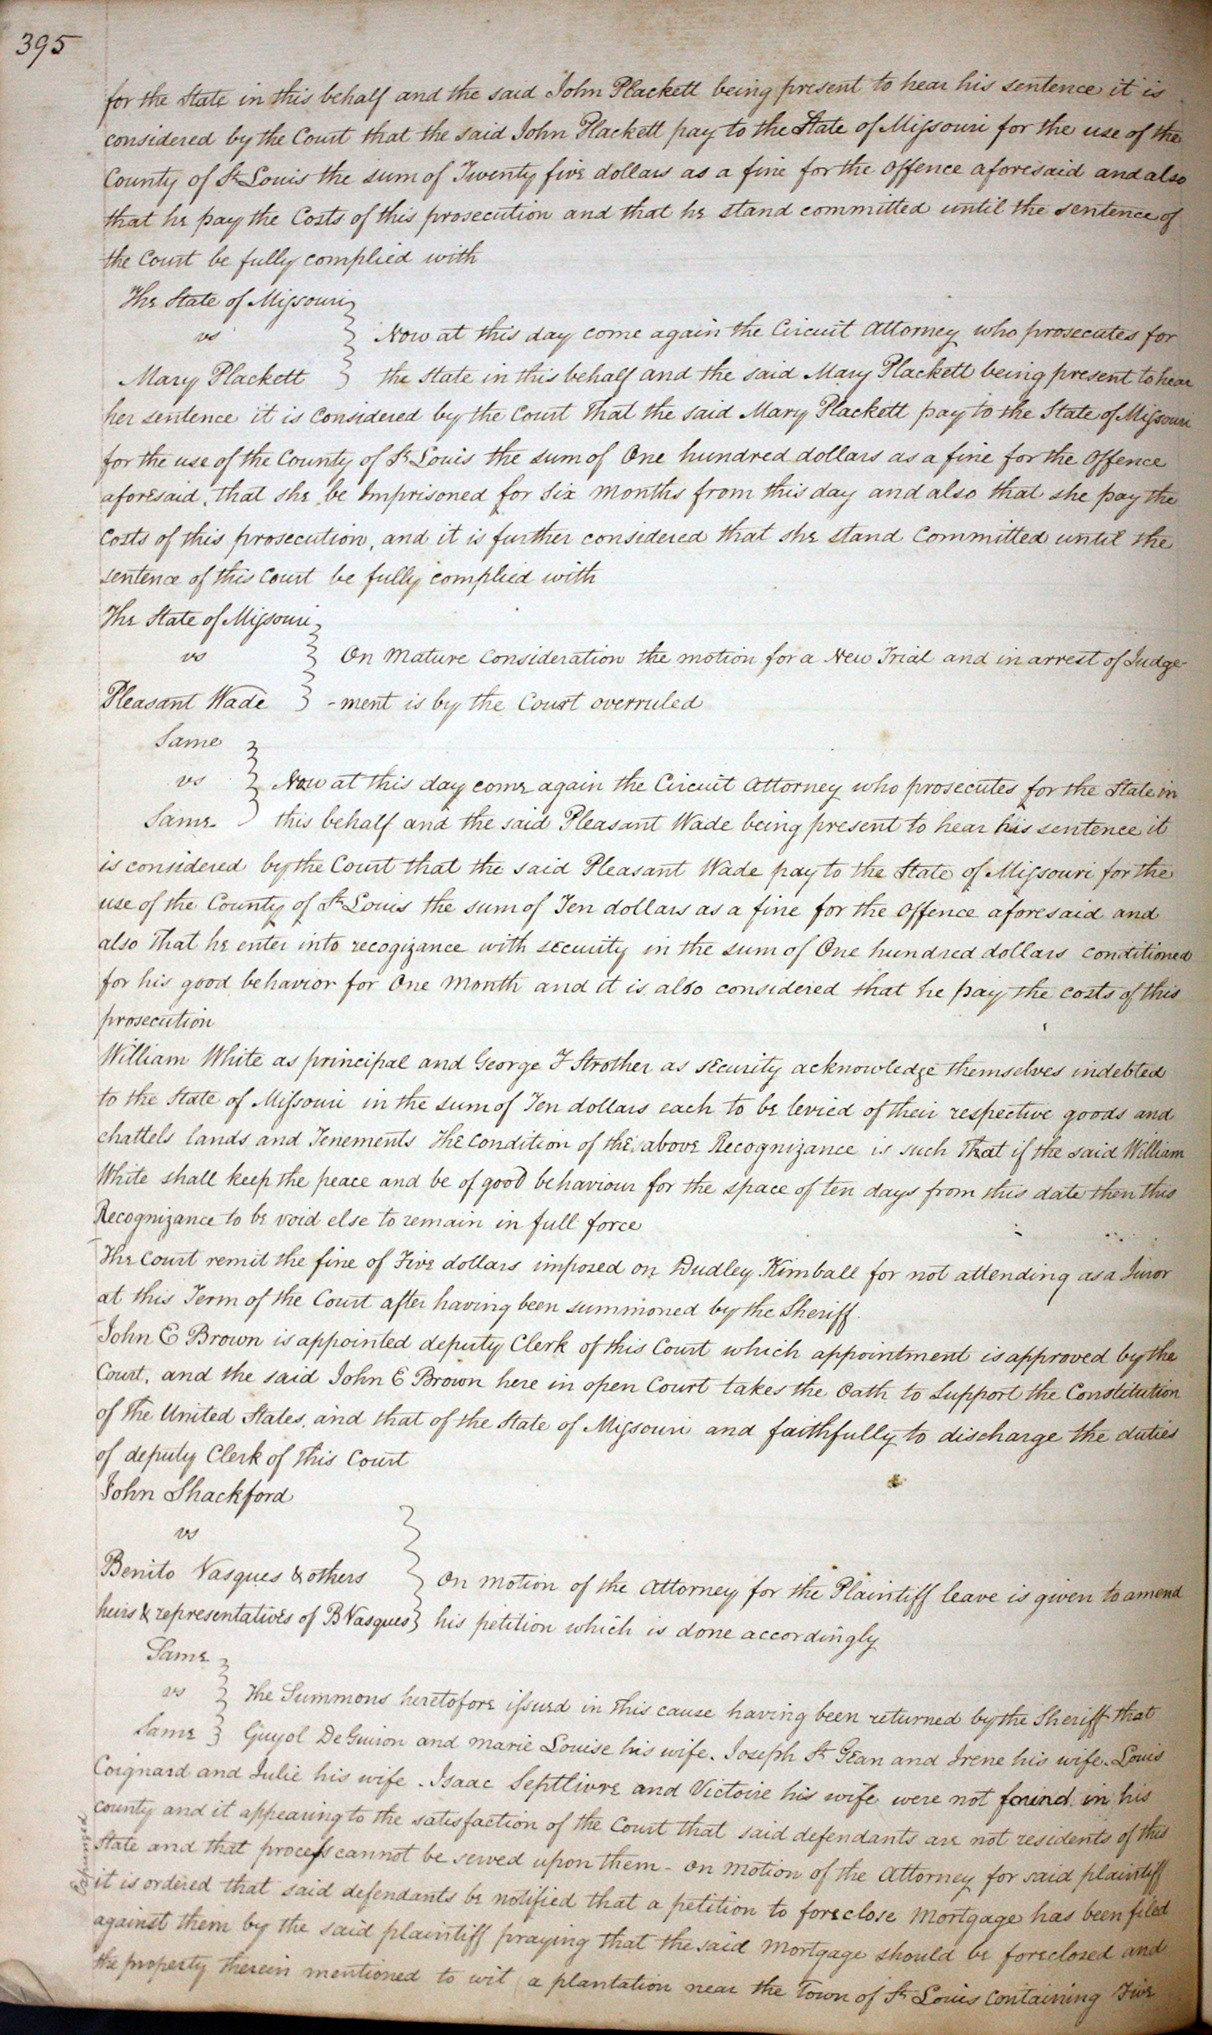 395
for the State in this behalf and the said John Plackett being present to hear his sentence it is
considered by the Court that the said John Plackett pay to the State of Missouri for the use of the
County of St Louis the sum of Twenty five dollars as a fine for the offence aforesaid and also
that he pay the Costs of this prosecution and that he stand committed until the sentence of
the Court be fully complied with
The State of Missouri
vs
Now at this day come again the Circuit Attorney who prosecutes for
Mary Plackett
the State in this behalf and the said Mary Plackett being present to hear
her sentence it is Considered by the Court that the said Mary Plackett pay to the State of Missouri
for the use of the County of St Louis the sum of One hundred dollars as a fine for the offence
aforesaid, that she be Imprisoned for six months from this day and also that she pay the
Costs of this prosecution, and it is further considered that she stand Committed until the
sentence of this Court be fully complied with
The State of Missouri
vs
On mature consideration the motion for a New Trial and in arrest of Judge-
Pleasant Wade
-ment is by the Court overruled
Same
vs
Now at this day come again the Circuit Attorney who prosecutes for the State in
Same
this behalf and the said Pleasant Wade being present to hear his sentence it
is considered by the Court that the said Pleasant Wade pay to the State of Missouri for the
use of the County of St Louis the sum of Ten dollars as a fine for the offence aforesaid and
also that he enter into recogizance with security in the sum of One hundred dollars conditioned
for his good behavior for One Month and it is also considered that he pay the costs of this
prosecution
William White as principal and George F Strother as security acknowledge themselves indebted
to the State of Missouri in the sum of Ten dollars each to be levied of their respective goods and
chattels lands and Tenements The Condition of the above Recognizance is such that if the said William
White shall keep the peace and be of good behaviour for the space of ten days from this date then this
Recognizance to be void else to remain in full force
The Court remit the fine of Five dollars imposed on Dudley Kimball for not attending as a Juror
at this Term of the Court after having been summoned by the Sheriff.
John E Brown is appointed deputy Clerk of this Court which appointment is approved by the
Court, and the said John E Brown here in open Court takes the Oath to support the Constitution
of the United States, and that of the State of Missouri and faithfully to discharge the duties
of deputy Clerk of this Court
John Shackford
vs
Benito Vasques & others
On motion of the Attorney for the Plaintiff leave is given to amend
heirs & representatives of B Vasques
his petition which is done accordingly
Same
vs
The Summons heretofore issued in this cause having been returned by the Sheriff that
Same
Guyol DeGuiron and Marie Louise his wife. Joseph St Gean and Irene his wife. Louis
Coignard and Julie his wife. Isaac Septlivre and Victoire his wife were not found in his
county and it appearing to the satisfaction of the Court that said defendants are not residents of this
State and that process cannot be served upon them - on motion of the Attorney for said plaintiff
it is ordered that said defendants be notified that a petition to foreclose Mortgage has been filed
against them by the said plaintiff praying that the said Mortgage should be foreclosed and
the property therein mentioned to wit (a plantation near the Town of St Louis containing Five